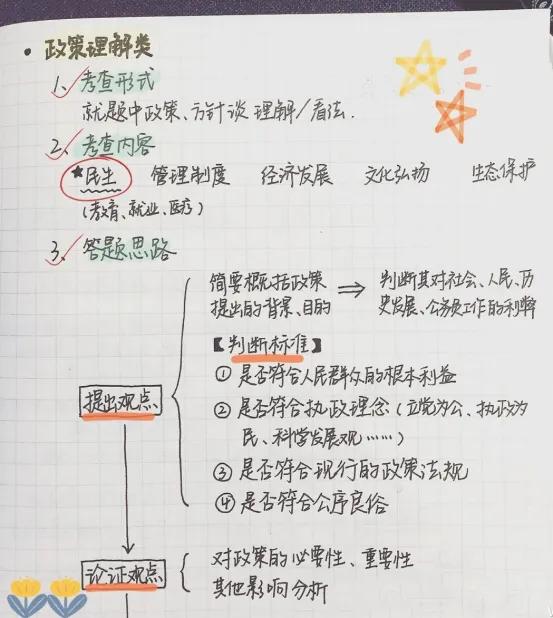 • 政策理解类
1、考查形式
就题中政策、方针谈理解/看法.
2、考查内容
*民生 管理制度 经济发展 文化弘扬 生态保护
(教育、就业、医疗)
3、答题思路
简要概括政策 ⇒ 判断其对社会、人民、历
提出的背景、目的 史发展、公务员工作的利弊
【判断标准】
① 是否符合人民群众的根本利益
提出观点
② 是否符合执政理念(立党为公、执政为
民、科学发展观……)
③ 是否符合现行的政策法规
④ 是否符合公序良俗
论证观点
对政策的必要性、重要性
其他影响分析